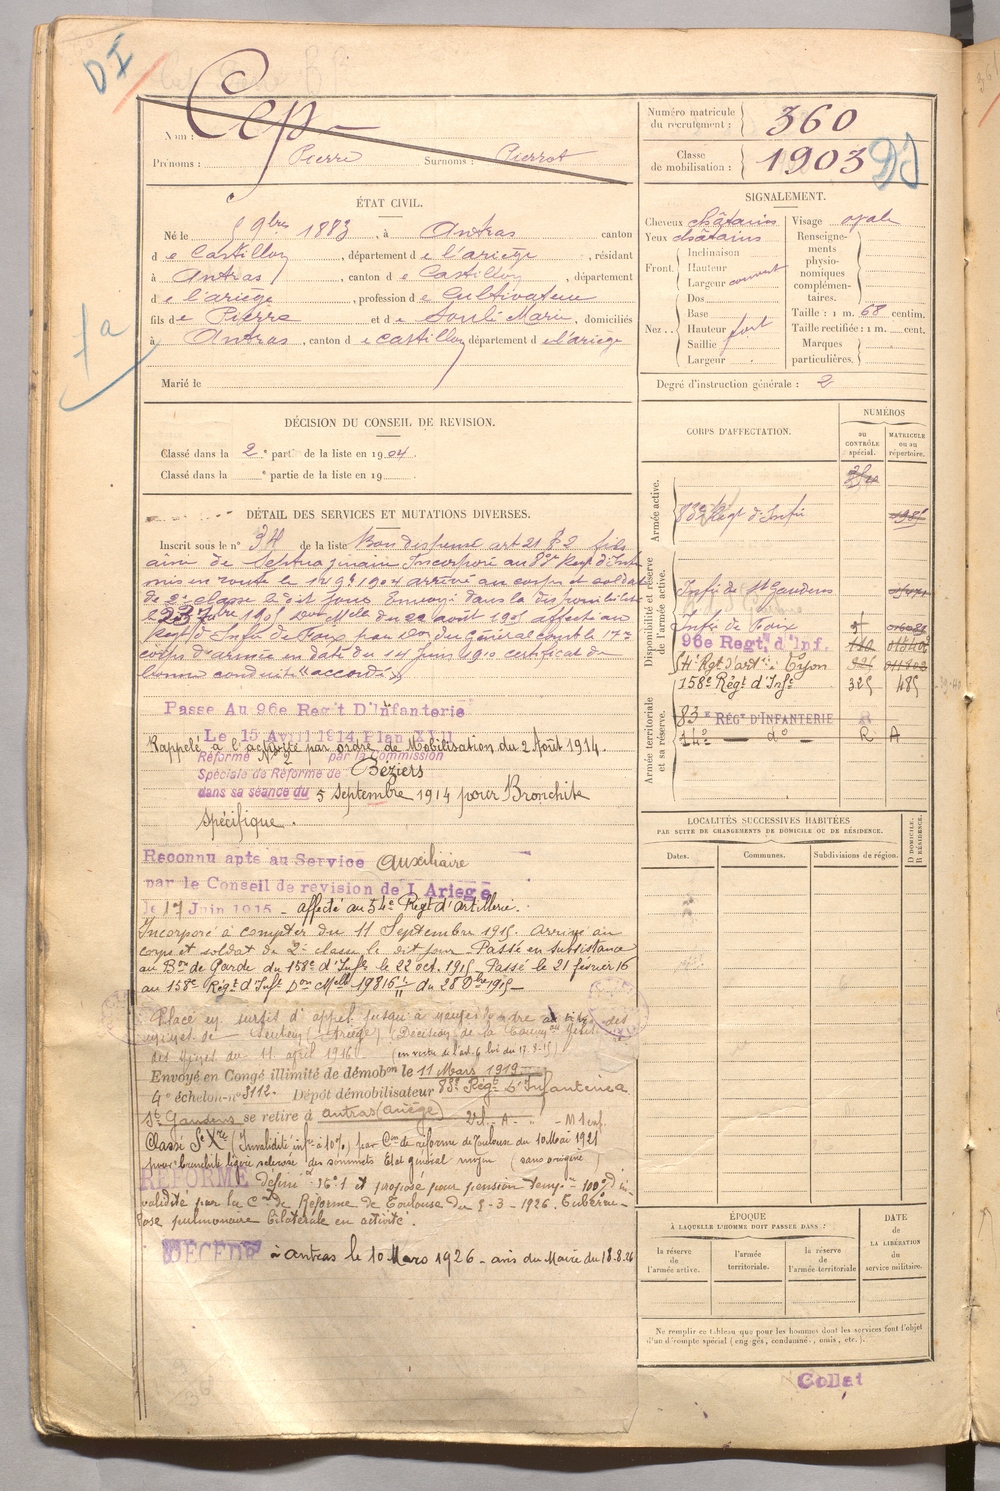 DI
Nom : Cep
Prénoms : Pierre Surnoms : Pierrot
ÉTAT CIVIL.
Né le 9bre 1883, à Antras canton
de Castillon, département de l'ariège, résidant
à Antras, canton de Castillon, département
de l'ariège, profession de Cultivateur
fils de Pierre et de Soulé Marie, domiciliés
à Antras, canton de Castillon département de l'ariège
Marié le
DÉCISION DU CONSEIL DE REVISION.
Classé dans la 2e partie de la liste en 1904.
Classé dans la e partie de la liste en 19
DÉTAIL DES SERVICES ET MUTATIONS DIVERSES.
Inscrit sous le n° 34 de la liste Bon dispensé art 21 § 2 fils
ainé de Septuagénaire Incorporé au 83e Regt d'Infie
mis en route le 14 9bre 1904 arrivé au corps et soldat
de 2e classe le dit jour Envoyé dans la disponibilité
le 23 7bre 1905 Don Melle du 22 août 1905 affecté au
Regt d'Infie de Foix par Don du Général comt le 17e
corps d'armée en date du 14 Juin 1910 certificat de
bonne conduite "accordé"
Passe Au 96e Reg't D'Infanterie
Le 15 Avril 1914 Plan XVII
Rappelé à l'activité par ordre de Mobilisation du 2 Août 1914.
Réformé No 2 par la Commission
Spéciale de Réforme de Béziers
dans sa séance du 5 Septembre 1914 pour Bronchite
spécifique.
Reconnu apte au Service auxiliaire
par le Conseil de revision de l Ariège
le 17 Juin 1915 - affecté au 54e Regt d'artillerie.
Incorporé à compter du 11 Septembre 1915. Arrivé au
corps et soldat de 2e classe le dit jour - Passé en subsistance
au Bon de Garde du 158e d'Infie le 22 oct. 1915 - Passé le 21 février 16
au 158e Régt d'Inft Don Melle 19816 1/11 du 28 Dbre 1915 -
Placé en sursis d'appel jusqu'à nouvel ordre au titre des
mines de Sentein (Ariège) (Décision de la
des mines du 11 avril 1916 (en vertu de l'art. 6 loi du 17-8-15)
Envoyé en Congé illimité de démobon le 11 Mars 1919
4e échelon n° 3112. Dépôt démobilisateur 83e Régt d'Infanterie à
St Gaudens se retire à antras (ariège)
Classé Sce Xre (Invalidité infre à 10%) par Con de réforme de Toulouse du 10 Mai 1921
pour bronchite légère sclérose des sommets Etat général moyen (sans origine)
RÉFORMÉ défini et n° 1 et proposé pour pension tempre 100% d'in-
validité par la Con de Réforme de Toulouse du 5-3-1926. Tubercu-
lose pulmonaire bilatérale en activité.
DÉCÉDÉ à antras le 10 Mars 1926 - avis du Maire du 18.8.26
Numéro matricule
du recrutement : 360
Classe
de mobilisation : 1903
DI
SIGNALEMENT.
Cheveux châtains
Yeux châtains
Front. Inclinaison
Hauteur
Largeur couvert
Nez.. Dos
Base
Hauteur fort
Saillie
Largeur
Visage ovale
Renseigne-
ments
physio-
nomiques
complémen-
taires.
Taille : 1 m. 68 centim.
Taille rectifiée : 1 m. cent.
Marques
particulières.
Degré d'instruction générale : 2
CORPS D'AFFECTATION.
NUMÉROS
au
CONTRÔLE
spécial.
MATRICULE
ou au
répertoire.
Armée active.
83e Régt d'Infie
Disponibilité et réserve
de l'armée active.
Infie de St Gaudens
Infie de Foix
96e Regt. d'Inf.
54e Rgt d'artie à Lyon
158e Régt d'Infie 325 485
Armée territoriale
et sa réserve.
83e RÉGt D'INFANTERIE R
14e do R A
LOCALITÉS SUCCESSIVES HABITÉES
PAR SUITE DE CHANGEMENTS DE DOMICILE OU DE RÉSIDENCE.
Dates. Communes. Subdivisions de région.
D DOMICILE.
R RÉSIDENCE.
ÉPOQUE
À LAQUELLE L'HOMME DOIT PASSER DANS :
la réserve
de
l'armée active.
l'armée
territoriale.
la réserve
de
l'armée territoriale
DATE
de
LA LIBÉRATION
du
service militaire.
Ne remplir ce tableau que pour les hommes dont les services font l'objet
d'un décompte spécial (engagés, condamnés, omis, etc.).
Collat